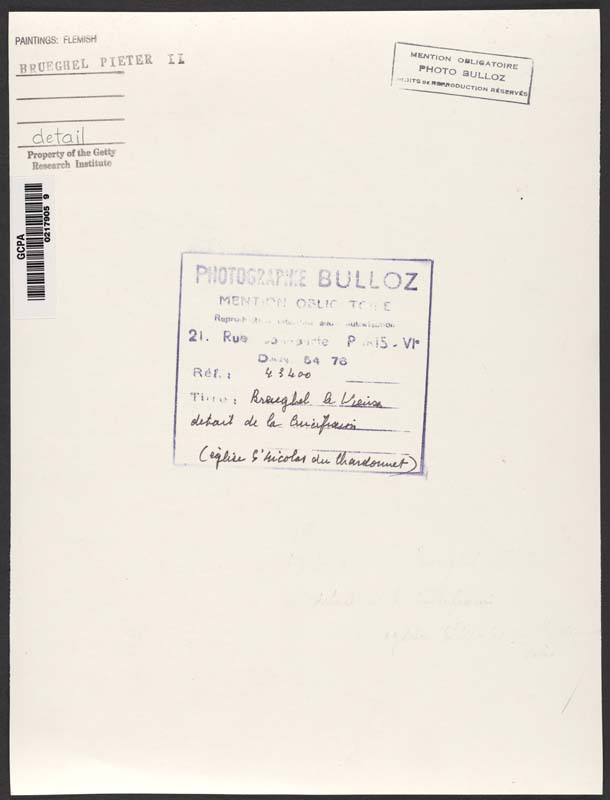 PAINTINGS: FLEMISH
BRUEGHEL PIETER II
detail
Property of the Getty
Research Institute
GCPA
0217905 9
MENTION OBLIGATOIRE
PHOTO BULLOZ
DROITS DE REPRODUCTION RÉSERVÉS
PHOTOGRAPHIE BULLOZ
MENTION OBLIGATOIRE
Reproduction interdite sans autorisation
21. Rue Bonaparte PARIS-VIe
DAN. 84 78
Réf.: 43400
Titre: Brueghel le Vieux
détail de la Crucifixion
(église St Nicolas du Chardonnet)